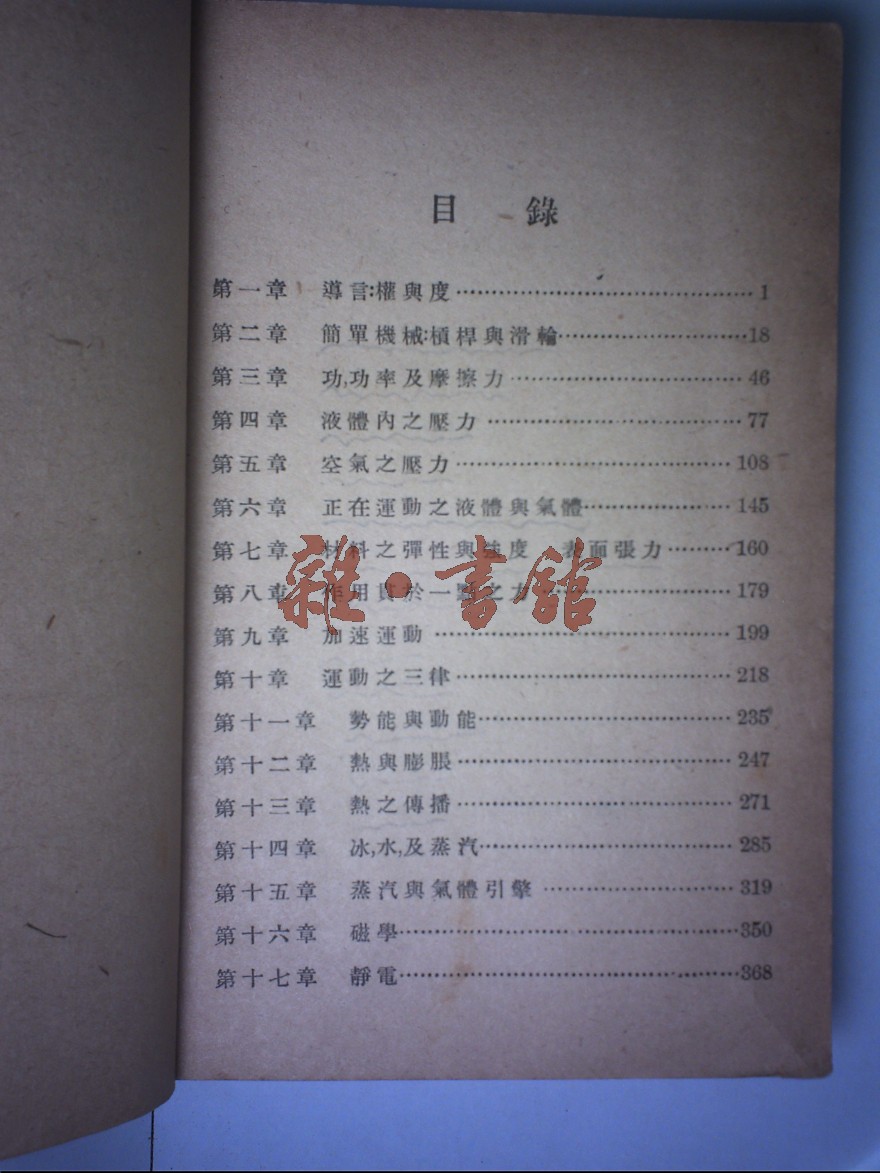 目錄
第一章 導言:權與度 1
第二章 簡單機械:槓桿與滑輪 18
第三章 功,功率及摩擦力 46
第四章 液體內之壓力 77
第五章 空氣之壓力 108
第六章 正在運動之液體與氣體 145
第七章 材料之彈性與強度 表面張力 160
第八章 作用貫於一點之力 179
第九章 加速運動 199
第十章 運動之三律 218
第十一章 勢能與動能 235
第十二章 熱與膨脹 247
第十三章 熱之傳播 271
第十四章 冰,水,及蒸汽 285
第十五章 蒸汽與氣體引擎 319
第十六章 磁學 350
第十七章 靜電 368
雜·書館